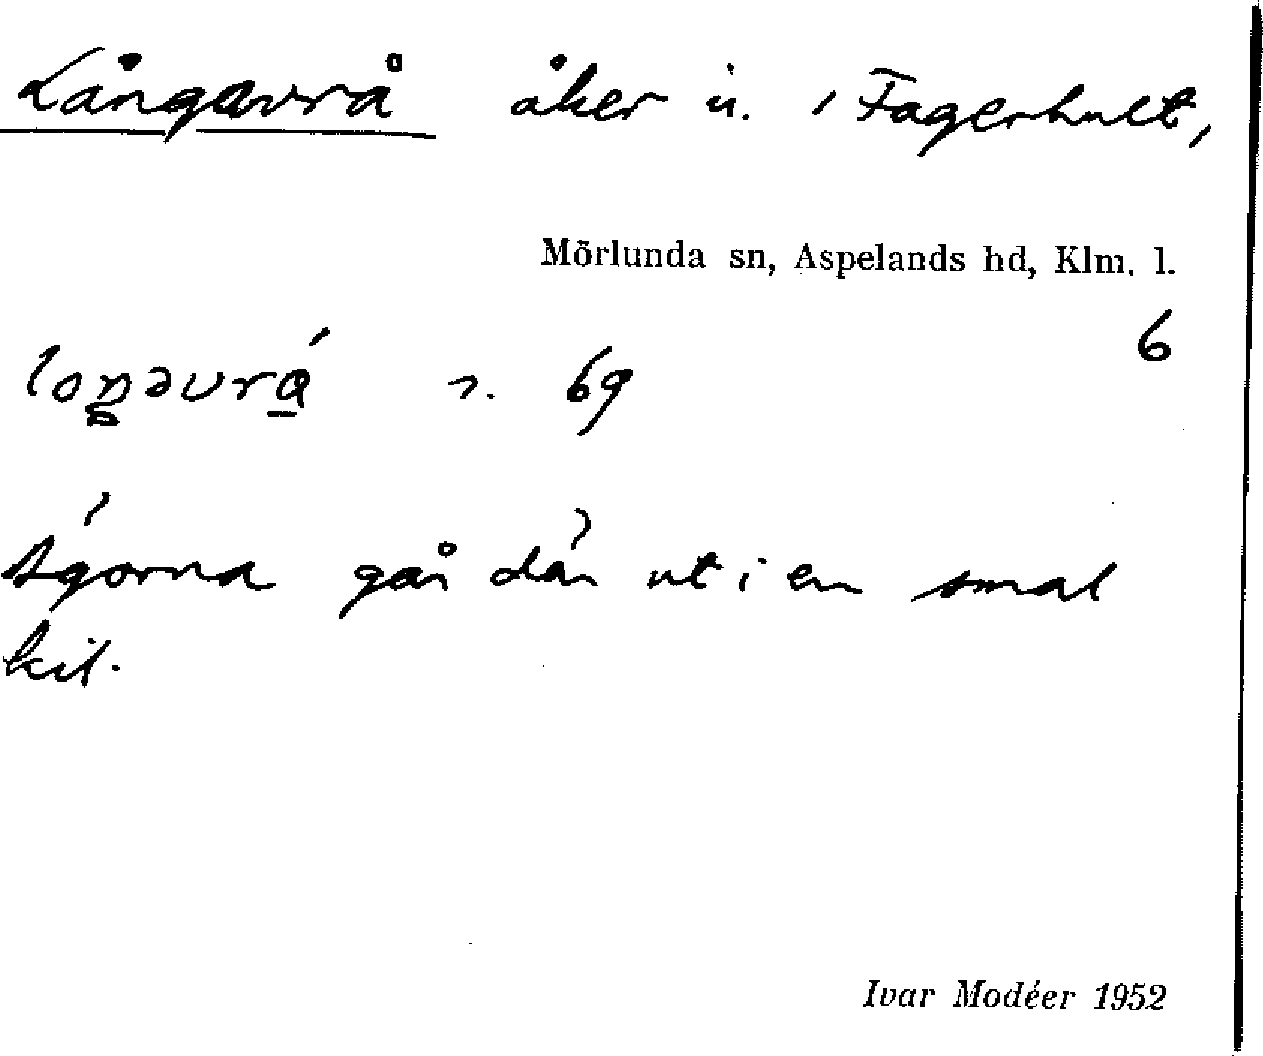 Långavrå åker ü. i Fagerhult,
Mörlunda sn, Aspelands hd, Klm. l.
6
s. 69
Ägorna går där ut i en smal
kil.
Ivar Modéer 1952